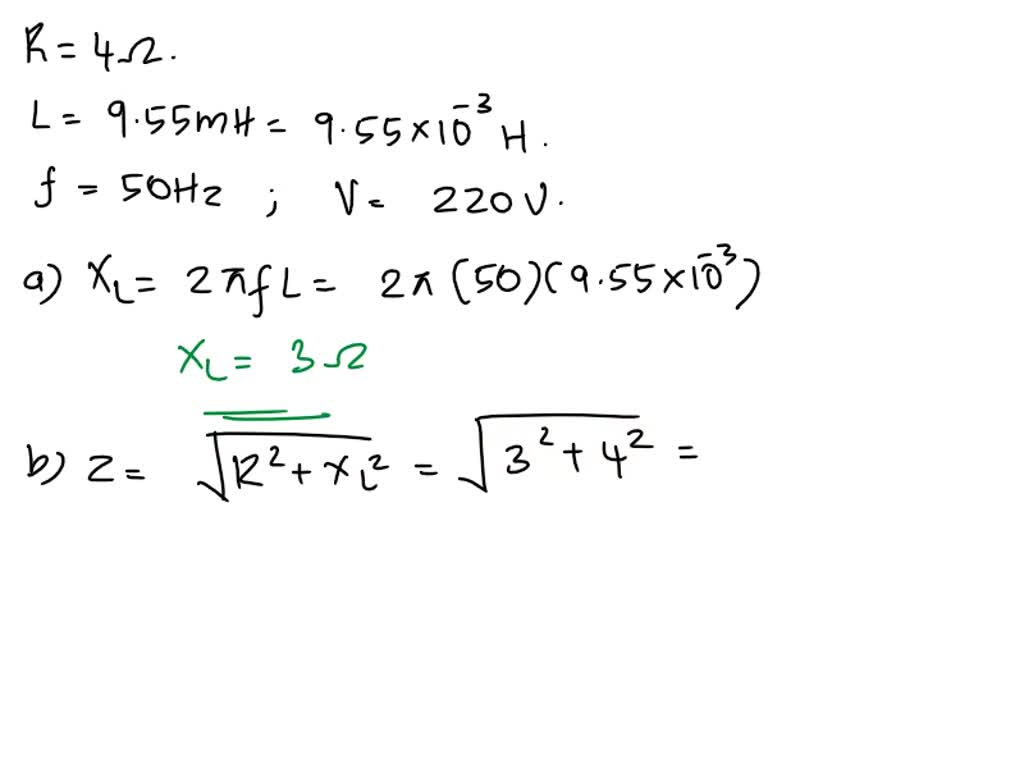 R = 4Ω.
L = 9.55mH = 9.55×10⁻³ H.
f = 50Hz ; V = 220V.
a) X_L = 2πfL = 2π(50)(9.55×10⁻³)
X_L = 3Ω
b) Z = √(R²+X_L²) = √(3²+4²) =